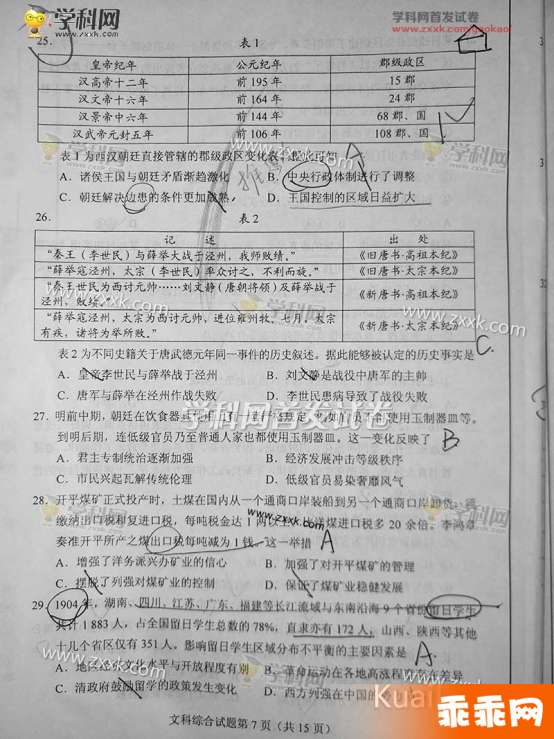 学科网
www.zxxk.com
学科网首发试卷
www.zxxk.com/gaokao
25. 表1
皇帝纪年 公元纪年 郡级政区
汉高帝十二年 前195年 15郡
汉文帝十六年 前164年 24郡
汉景帝中六年 前144年 68郡、国
汉武帝元封五年 前106年 108郡、国
表1为西汉朝廷直接管辖的郡级政区变化表。
A
A. 诸侯王国与朝廷矛盾渐趋激化 B. 中央行政体制进行了调整
C. 朝廷解决边患的条件更加成熟 D. 王国控制的区域日益扩大
26. 表2
记 述 出 处
“秦王（李世民）与薛举大战于泾州，我师败绩。” 《旧唐书·高祖本纪》
“薛举寇泾州，太宗（李世民）率众讨之，不利而旋。” 《旧唐书·太宗本纪》
“秦王世民为西讨元帅……刘文静（唐朝将领）及薛举战于
泾州，败绩。” 《新唐书·高祖本纪》
“薛举寇泾州，太宗为西讨元帅，进位雍州牧。七月，太宗
有疾，诸将为举所败。” 《新唐书·太宗本纪》
表2为不同史籍关于唐武德元年同一事件的历史叙述。据此能够被认定的历史事实是
C.
A. 皇帝李世民与薛举战于泾州 B. 刘文静是战役中唐军的主帅
C. 唐军与薛举在泾州作战失败 D. 李世民患病导致了战役失败
27. 明前中期，朝廷在饮食器具使用上 使用玉制器皿等。
到明后期，连低级官员乃至普通人家也都使用玉制器皿。这一变化反映了
B
A. 君主专制统治逐渐加强 B. 经济发展冲击等级秩序
C. 市民兴起瓦解传统伦理 D. 低级官员易染奢靡风气
28. 开平煤矿正式投产时，土煤在国内从一个通商口岸装船到另一个通商口岸卸货，须
缴纳出口税和复进口税，每吨税金达1两 洋煤进口税多20余倍。李鸿章
奏准开平所产之煤出口税每吨减为1钱。这一举措
A
A. 增强了洋务派兴办矿业的信心 B. 加强了对开平煤矿的管理
C. 摆脱了列强对煤矿业的控制 D. 保证了煤矿业稳健发展
29. 1904年，湖南、四川、江苏、广东、福建等长江流域与东南沿海9个省份留日学生
共计1 883人，占全国留日学生总数的78%，直隶亦有172人，山西、陕西等其他
十几个省区仅有351人。影响留日学生区域分布不平衡的主要因素是
A.
A. 地区经济文化水平与开放程度有别 B. 革命运动在各地高涨程度存在差异
C. 清政府鼓励留学的政策发生变化 D. 西方列强在中国的
文科综合试题第7页（共15页）
Kuai
乖乖网